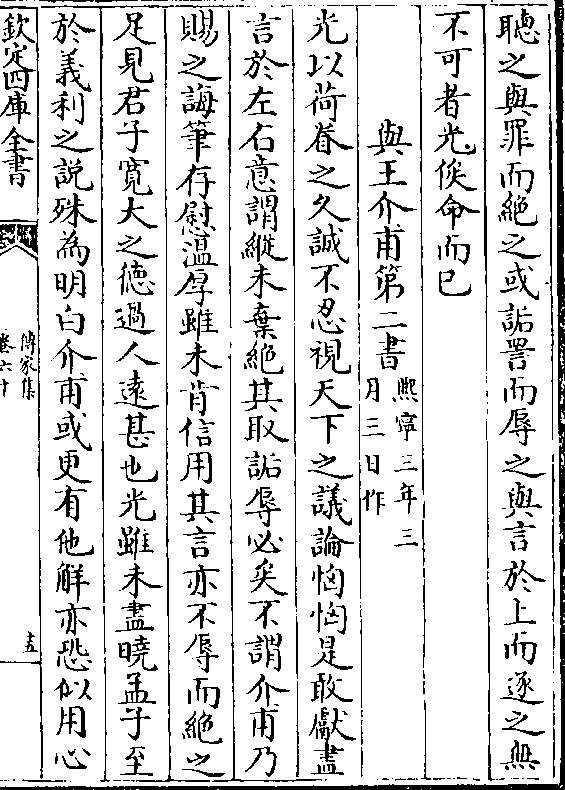 聽之與罪而絶之或詬詈而辱之與言於上而逐之無
不可者光俟命而已
與王介甫第二書
熙寧三年三
月三日作
光以荷眷之久誠不忍視天下之議論恟恟是敢獻盡
言於左右意謂縱未棄絶其取詬辱必矣不謂介甫乃
賜之誨筆存慰溫厚雖未肯信用其言亦不辱而絶之
足見君子寛大之德過人逺甚也光雖未盡曉孟子至
於義利之説殊為明白介甫或更有他解亦恐似用心
欽定四庫全書
傳家集
卷六十